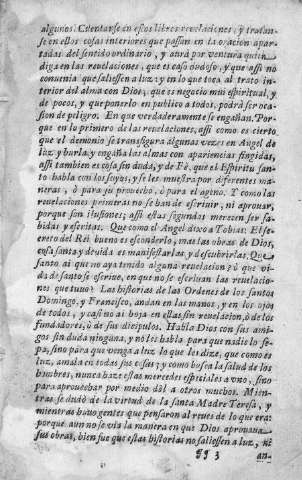 algunos. Cuentanse en estos libros reuelaciones, y tratan-
se en ellos cosas interiores que passan en la oracion apar-
tadas del sentido ordinario, y aura por ventura quien
diga en las reuelaciones, que es caso dudoso, y que assi no
conuenia que saliessen a luz: y en lo que toca al trato in-
terior del alma con Dios, que es negocio muy espiritual, y
de pocos, y que ponerlo en publico a todos, podrá ser oca-
sion de peligro. En que verdaderamente se engañan. Por-
que en lo primero de las reuelaciones, assi como es cierto
que el demonio se transfigura algunas vezes en Angel de
luz, y burla y engaña las almas con apariencias fingidas,
assi tambien es cosa sin duda, y de Fé, que el Espiritu san-
to habla con los suyos, y se les muestra por diferentes ma-
neras, ò para su prouecho, ò para el ageno. Y como las
reuelaciones primeras no se han de escriuir, ni aprouar,
porque son ilusiones; assi estas segundas merecen ser sa-
bidas y escritas. Que como el Angel dixo a Tobias: El se-
creto del Rei bueno es esconderlo, mas las obras de Dios,
cosa santa y deuida es manifestarlas, y descubrirlas. Que
santo ai que no aya tenido alguna reuelacion? ò que vi-
da de santo se escriue, en que no se escriuan las reuelacio-
nes que tuuo? Las historias de las Ordenes de los santos
Domingo, y Francisco, andan en las manos, y en los ojos
de todos, y casi no ai hoja en ellas sin reuelacion, ò de los
fundadores, ò de sus dicipulos. Habla Dios con sus ami-
gos sin duda ninguna, y no les habla para que nadie lo se-
pa, sino para que venga a luz lo que les dize, que como es
luz, amala en todas sus cosas; y como busca la salud de los
hombres, nunca haze estas mercedes especiales a vno, sino
para aprouechar por medio dèl a otros muchos. Mien-
tras se dudò de la virtud de la santa Madre Teresa, y
mientras huuo gentes que pensaron al reues de lo que era:
porque aun no se via la manera en que Dios aprouaua
sus obras, bien fue que estas historias no saliessen a luz, ni
¶¶ 3
an-